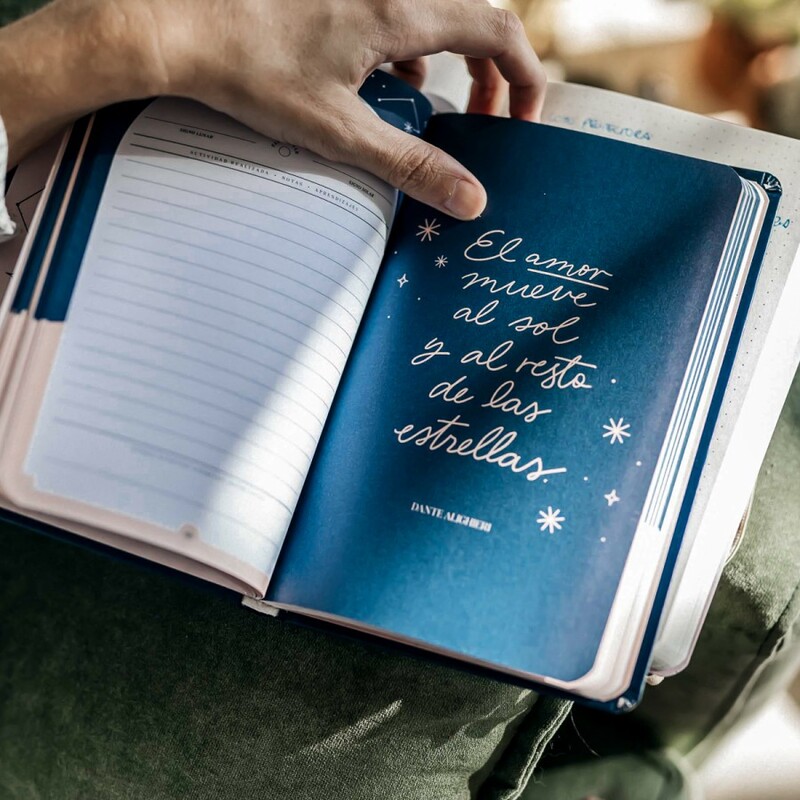 ACTIVIDAD REALIZADA • NOTAS • APRENDIZAJES
El amor
mueve
al sol
y al resto
de las
estrellas.
DANTE ALIGHIERI